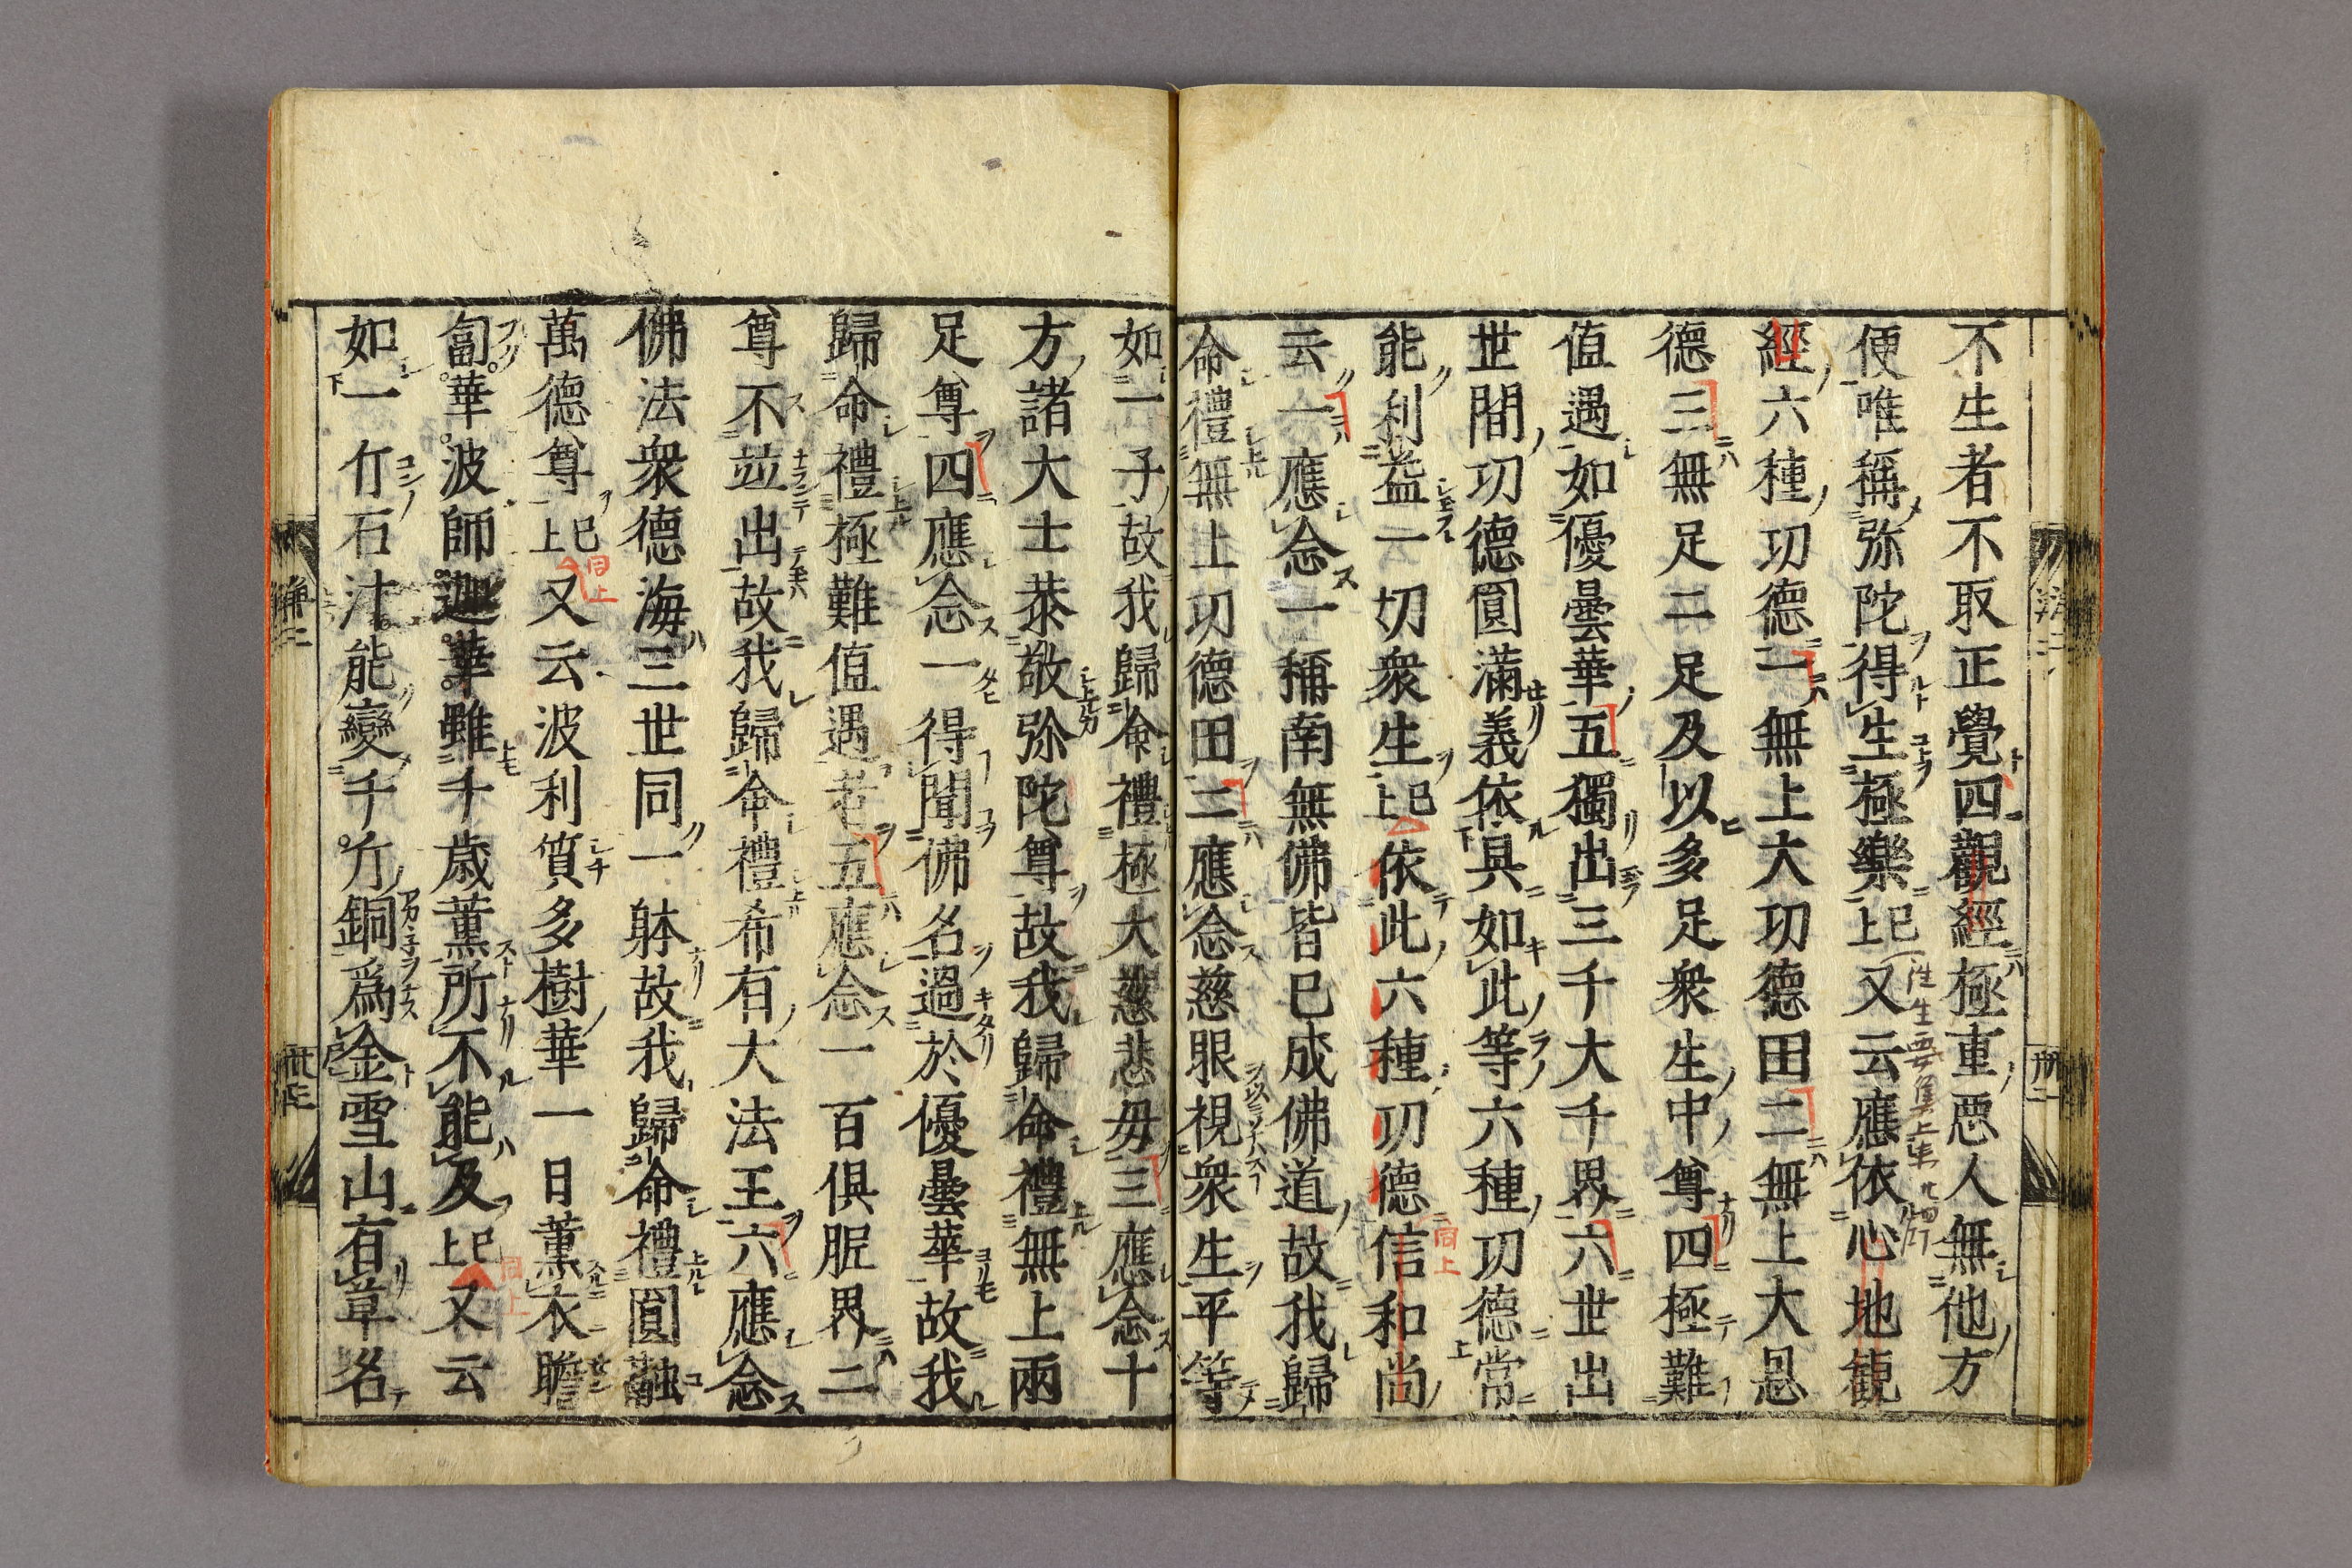 不生者不取正覺四觀經極重惡人無他方
便唯稱弥陀得生極樂已上又云應依心地観
經六種功德一無上大功德田二無上大恩
德三無足二足及以多足衆生中尊四極難
值遇如優曇華五獨出三千大千界六世出
世間功德圓滿義依具如此等六種功德常
能利益一切衆生已上依此六種功德信和尚
云一應念一稱南無佛皆已成佛道故我歸
命禮無上功德田二應念慈眼視衆生平等
如一子故我歸命禮極大慈悲母三應念十
方諸大士恭敬弥陀尊故我歸命禮無上兩
足尊四應念一得聞佛名過於優曇華故我
歸命禮極難值遇者五應念一百俱胝界二
尊不竝出故我歸命禮希有大法王六應念
佛法衆德海三世同一躰故我歸命禮圓融
萬德尊已上又云波利質多樹華一日薰衣瞻
蔔華波師迦華雖千歲薰所不能及已上又云
如一斤石汁能變千斤銅爲金雪山有草名
同上
同上
同上